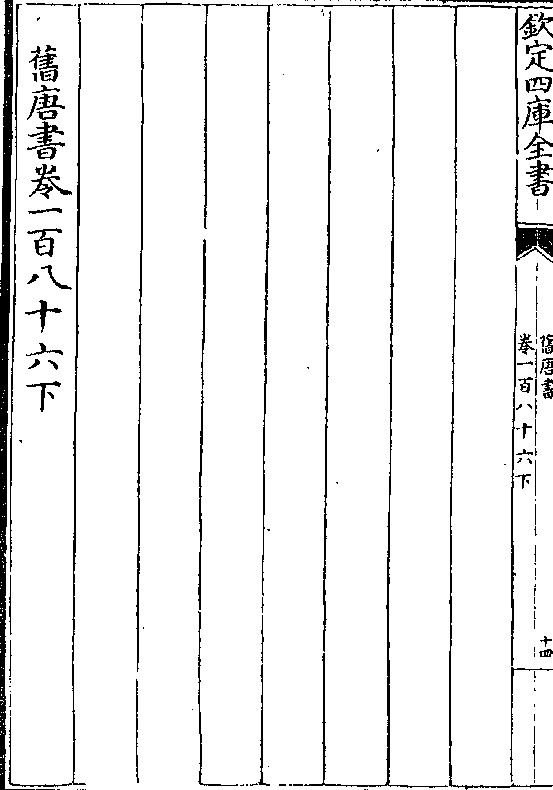 欽定四庫全書
舊唐書
卷一百八十六下
十四
舊唐書卷一百八十六下